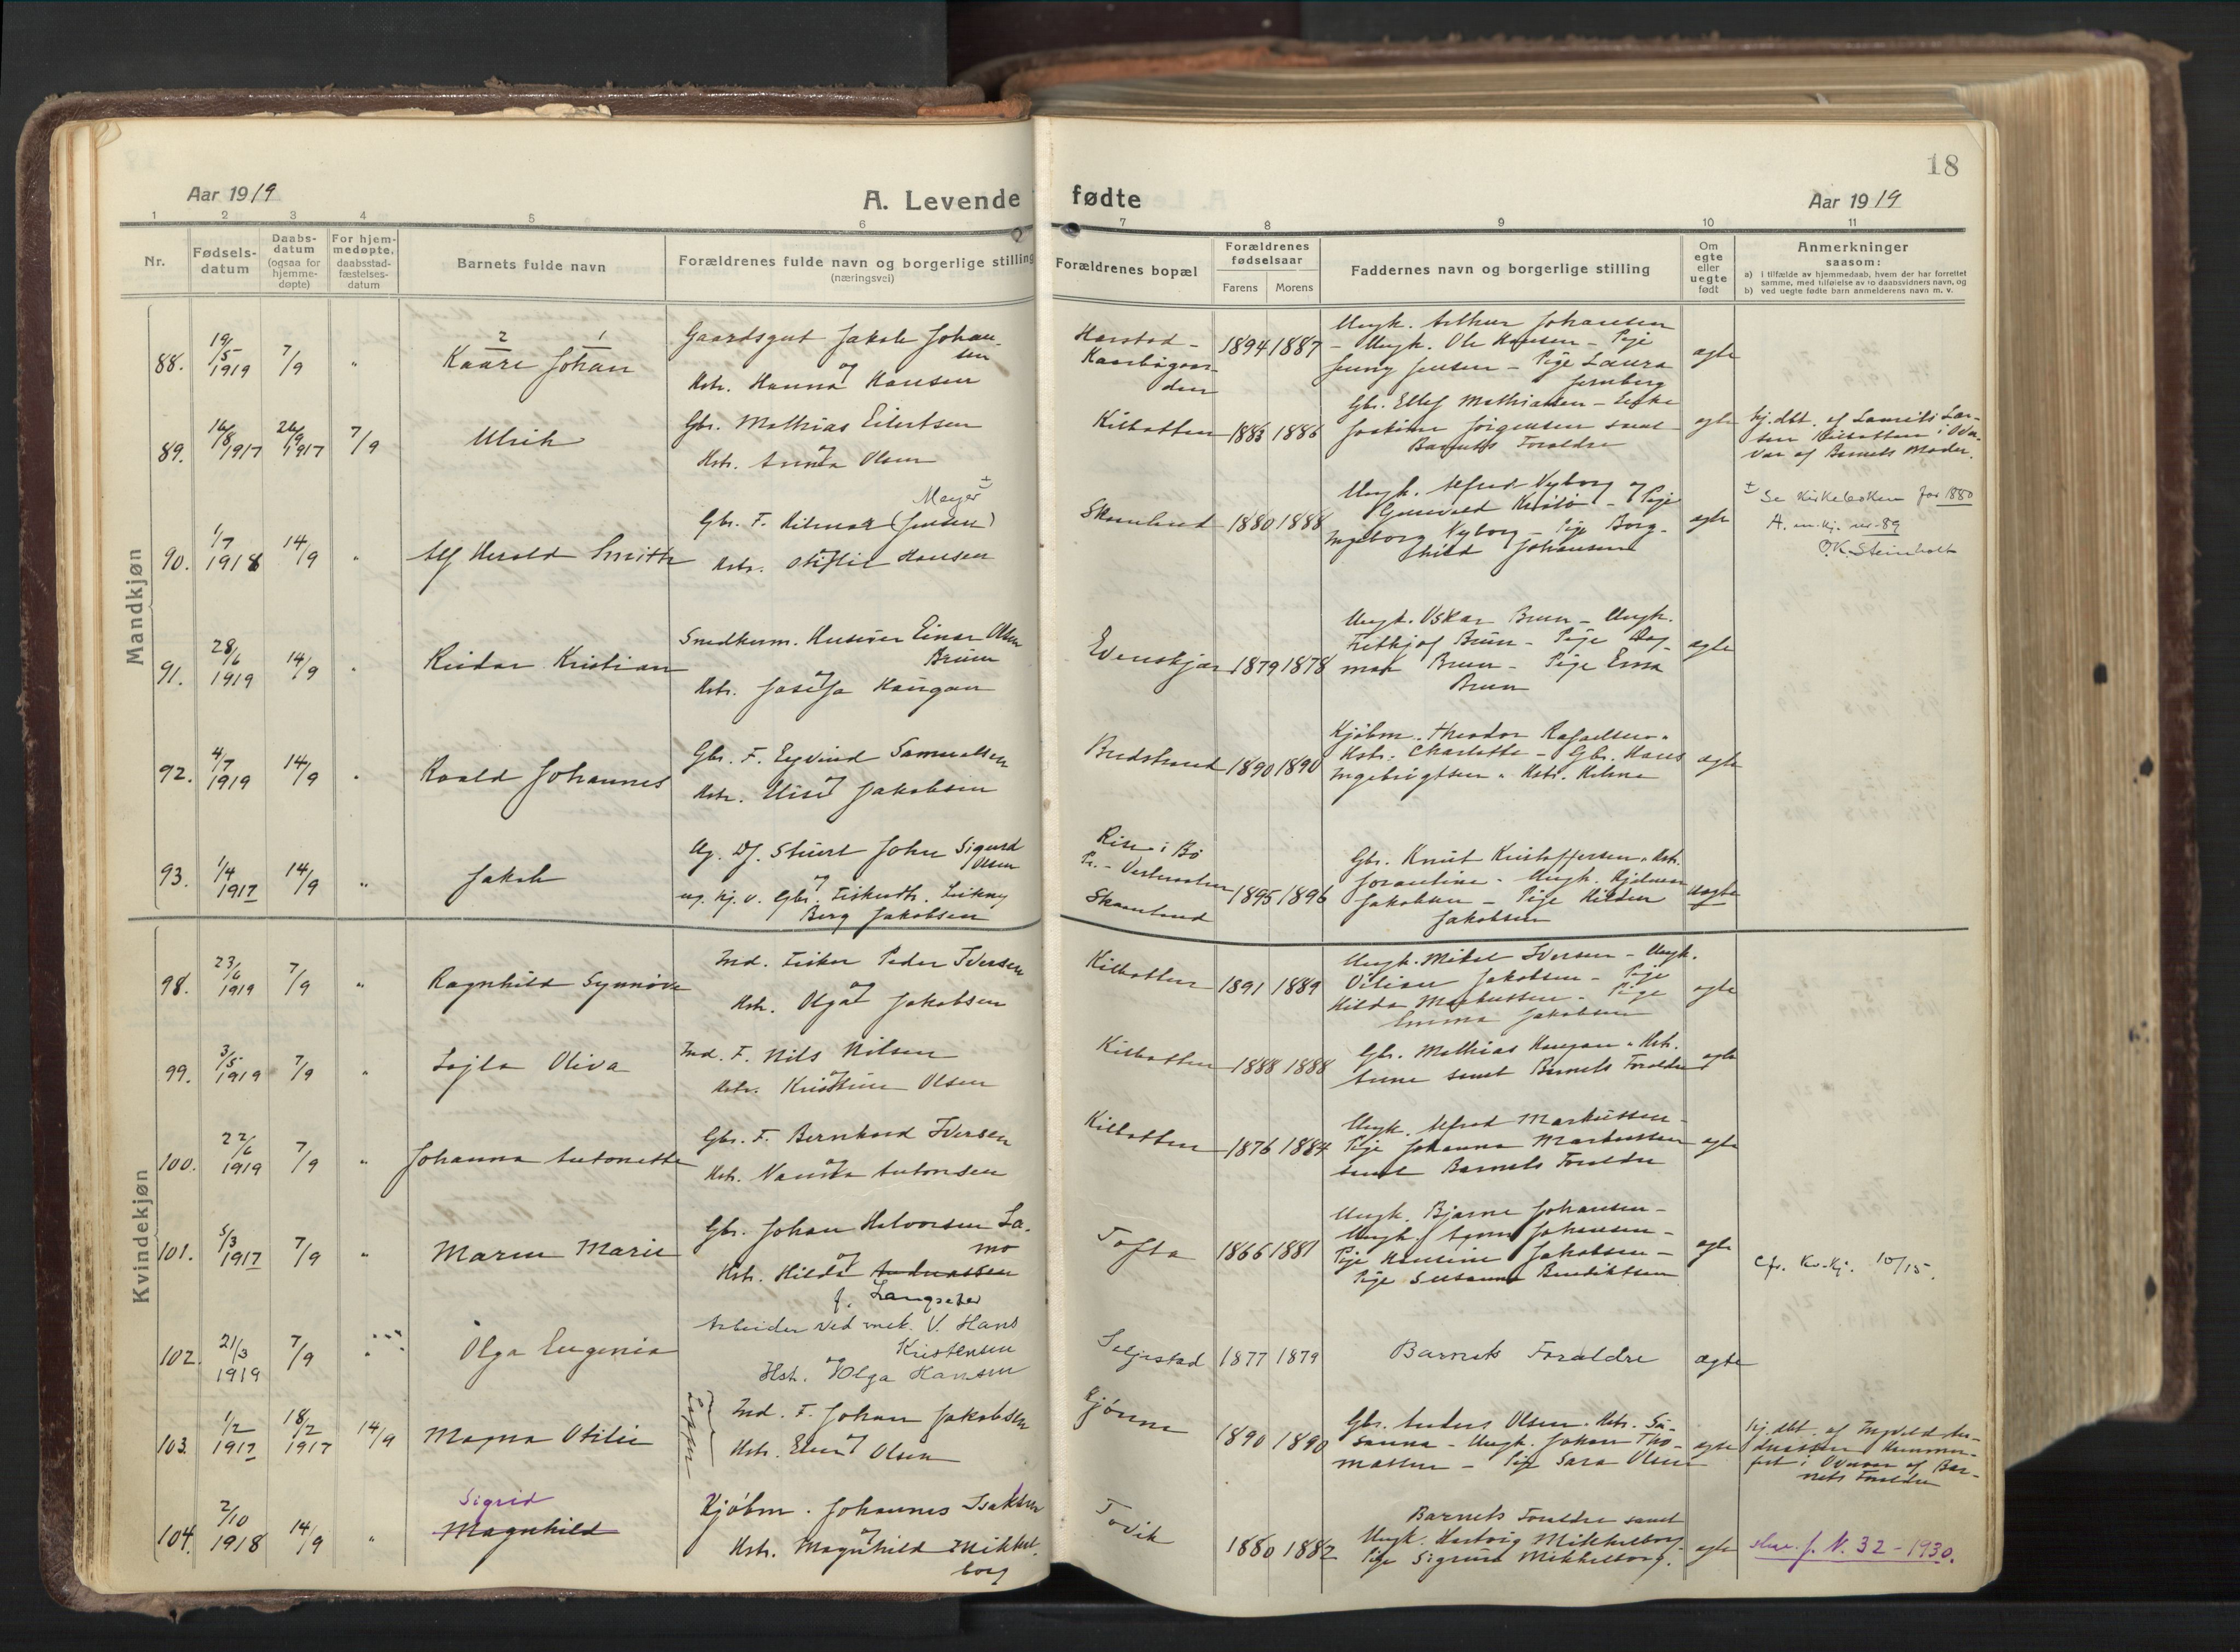 18
Aar 1919
A. Levende
fødte
Aar 1919
1 2 3 4 5 6 7 8 9 10 11
Nr.
Fødsels-
datum
Daabs-
datum
(ogsaa for
hjemme-
døpte)
For hjem-
medøpte,
daabsstad-
fæstelses-
datum
Barnets fulde navn
Forældrenes fulde navn og borgerlige stilling
(næringsvei)
Forældrenes bopæl
Forældrenes
fødselsaar
Farens
Morens
Faddernes navn og borgerlige stilling
Om
egte
eller
uegte
født
Anmerkninger
saasom:
a) i tilfælde av hjemmedaab, hvem der har forrettet
samme, med tilføielse av to daabsvidners navn, og
b) ved uegte fødte barn anmelderens navn m. v.
Mandkjøn
88.
19/5
1919
7/9
"
2 1
Kaare Johan
Gaardsgut Jakob Johan-
sen
og
Hstr. Hanna Hansen
Harstad -
Kanebogaar-
den
1894
1887
Ungk. Arthur Johansen
- Ungk. Ole Hansen - Pige
Jenny Jensen - Pige Laura
Jernberg
ægte
89.
16/8 1917
26/9 1917
7/9
Ulrik
Gbr. Mathias Eilertsen
og
Hstr. Anna Olsen
Kilbotten
1883
1886
Gbr. Ellef Mathiassen - Enke
Joakime Jørgensen samt
Barnets Forældre
ægte
hj.dbt. af Laurits Lar-
sen Kilbotten i Over-
vær af Barnets Moder.
90.
1/7
1918
14/9
"
Alf Herold Smith
Meyer ±
Gbr. F. Hilmar (Jensen)
og
Hstr. Otilie Hansen
Skaanland
1880
1888
Ungk. Alfred Nyborg og
Pige
Ingeborg Nyborg - Pige Borg-
hild Johansen
ægte
± Se Kirkeboken for 1880
A. m.kj. nr. 89
O.K. Steinholt
91.
28/6
1919
14/9
"
Reidar Kristian
Snedkerm. Huseier Einar Olsen
Bruun
og
Hstr. Josefa Haugan
Evenskjær
1879
1878
Ungk. Oskar Bruun - Ungk.
Frithjof Bruun - Pige Dag-
mar Bruun - Pige Erna
Bruun
ægte
92.
4/7
1919
14/9
"
Roald Johannes
Gbr. F. Eyvind Samuelsen
og
Hstr. Elise Jakobsen
Bredstrand
1890
1890
Kjøbm. Theodor Rafaelsen "
Hstr. Charlotte - Gbr. Hans
Ingebrigtsen " Hstr. Helene
ægte
93.
1/4
1917
14/9
"
Jakob
Ug. Df. Stuert John Sigurd
Olsen
og
ug. kj. v. Gbr. Fiskerdtr. Leikny
Berg Jakobsen
Risø i Bø
Pr. - Vesteraalen
Skaanland
1895
1896
Gbr. Knut Kristoffersen " Hstr.
Jorantine - Ungk. Hjelmar
Jakobsen - Pige Hildur
Jakobsen
uægte
Kvindekjøn
98.
23/6
1919
7/9
"
Ragnhild Synnøve
Ind. Fisker Peder Iversen
og
Hstr. Olga Jakobsen
Kilbotten
1891
1889
Ungk. Mikal Iversen - Ungk.
Vilian Jakobsen - Pige
Hilda Markussen - Pige
Emma Jakobsen
ægte
99.
3/5
1919
7/9
"
Lajla Oliva
Ind. F. Nils Nilsen
og
Hstr. Kristine Olsen
Kilbotten
1888
1888
Gbr. Mathias Haugan " Hstr.
Anne samt Barnets Forældre
ægte
100.
22/6
1919
7/9
"
Johanna Antonette
Gbr. F. Bernhard Iversen
og
Hstr. Nanna Antonsen
Kilbotten
1876
1884
Ungk. Alfred Markussen -
Pige Johanna Markussen
samt Barnets Forældre
ægte
101.
5/3
1917
7/9
"
Maren Marie
Gbr. Johan Halvorsen La-
mo
og
Hstr. Hilda Andreassen
f. Langseter
Tofta
1866
1881
Ungk. Bjarne Johansen -
Ungk. Johansen -
Pige Hansine Jakobsen -
Pige Susanna Benediktsen
ægte
Cfr. Kv.kj. 10/15.
102.
21/3
1919
7/9
"
Olga Eugenia
Arbeider ved mek. V. Hans
Kristensen
og
Hst. Olga Hansen
Seljestad
1877
1879
Barnets Forældre
ægte
103.
1/2
1917
18/2
1917
14/9
Magna Otilie
Lapper
Ind. F. Johan Jakobsen
og
Hstr. Elen Olsen
1890
1890
Gbr. Anders Olsen " Hstr. Su-
sanna - Ungk. Johan Tho-
massen - Pige Sara Olsen
ægte
hj.dbt. af Ingveld An-
dreassen Hammer-
fest i Overvær af Bar-
nets Forældre
104.
2/10
1918
14/9
"
Sigrid
Magnhild
Kjøbm. Johannes Isaksen
og
Hstr. Magnhild Mikkel-
borg
Tovik
1880
1882
Barnets Forældre samt
Ungk. Hartvig Mikkelborg
Pige Sigrund Mikkelborg.
ægte
skr. f. N. 32 - 1930.